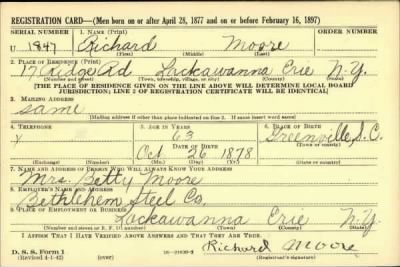 REGISTRATION CARD—(Men born on or after April 28, 1877 and on or before February 16, 1897)
SERIAL NUMBER 1. NAME (Print) ORDER NUMBER
U 1847 Richard Moore
(First) (Middle) (Last)
2. PLACE OF RESIDENCE (Print)
17 Ridge Rd Lackawanna Erie N.Y.
(Number and street) (Town, township, village, or city) (County) (State)
[THE PLACE OF RESIDENCE GIVEN ON THE LINE ABOVE WILL DETERMINE LOCAL BOARD
JURISDICTION; LINE 2 OF REGISTRATION CERTIFICATE WILL BE IDENTICAL]
3. MAILING ADDRESS
Same
[Mailing address if other than place indicated on line 2. If same insert word same]
4. TELEPHONE 5. AGE IN YEARS 6. PLACE OF BIRTH
63 Greenville, S.C.
DATE OF BIRTH
Oct 26 1878
(Exchange) (Number) (Mo.) (Day) (Yr.) (State or country)
7. NAME AND ADDRESS OF PERSON WHO WILL ALWAYS KNOW YOUR ADDRESS
Mrs. Betty Moore
8. EMPLOYER'S NAME AND ADDRESS
Bethlehem Steel Co.
9. PLACE OF EMPLOYMENT OR BUSINESS
Lackawanna Erie N.Y.
(Number and street or R. F. D. number) (Town) (County) (State)
I AFFIRM THAT I HAVE VERIFIED ABOVE ANSWERS AND THAT THEY ARE TRUE.
D. S. S. Form 1
(Revised 4-1-42) Richard Moore